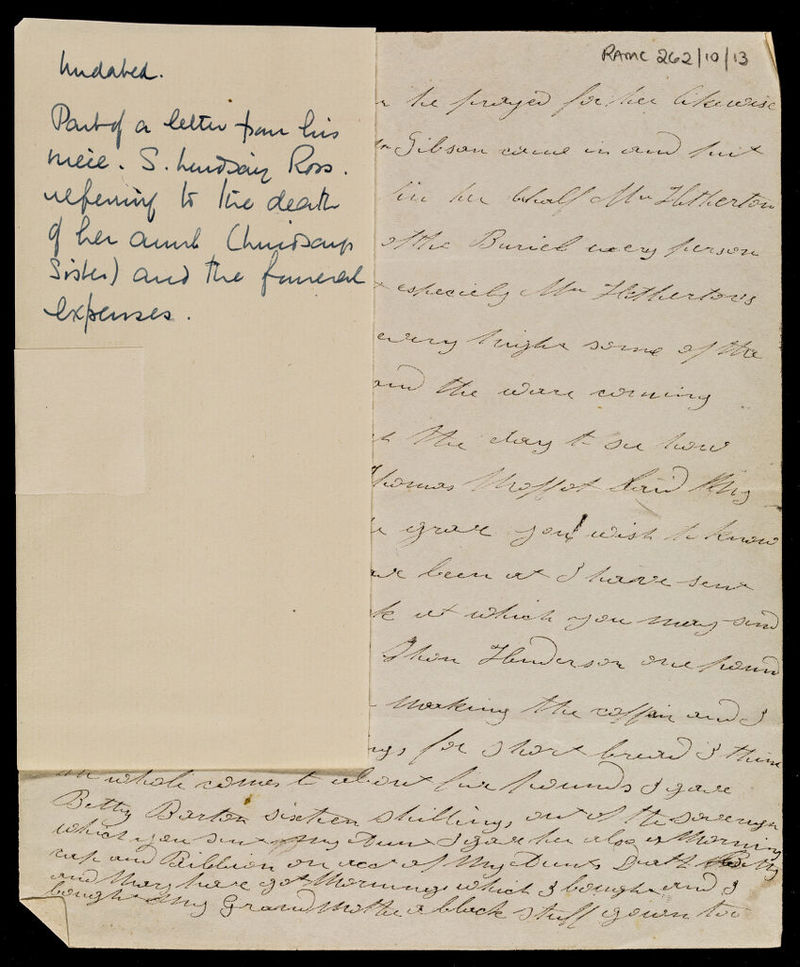 RAMC 262/10/13
Undated.
Part of a letter from his
niece. S. Lindsay Ross.
referring to the death
of her aunt (Lindsay's
Sister) and the funeral
expenses.
he prayed for her likewise
Gibson came in and put
in her behalf Mrs Hetherton
of the Buriel every person
especiely Mrs Hetherton's
every night some of the
and the ware coming
the day to see how
Thomas Moffot Laid My
grave you wish to know
been at I have sent
at which you may send
Jhon Henderson one pound
making the coffin and I
for short bread I think
whole comes to about five pounds I gave
Betty Barton sixteen shillings out of the sovereign
which you sent My Aunt I gave her also a Morning
cap and Ribbion on acct of My Aunts Death Betty
and Mary have got Mornings which I bought and I
bought My Grandmother a black stuff gown too